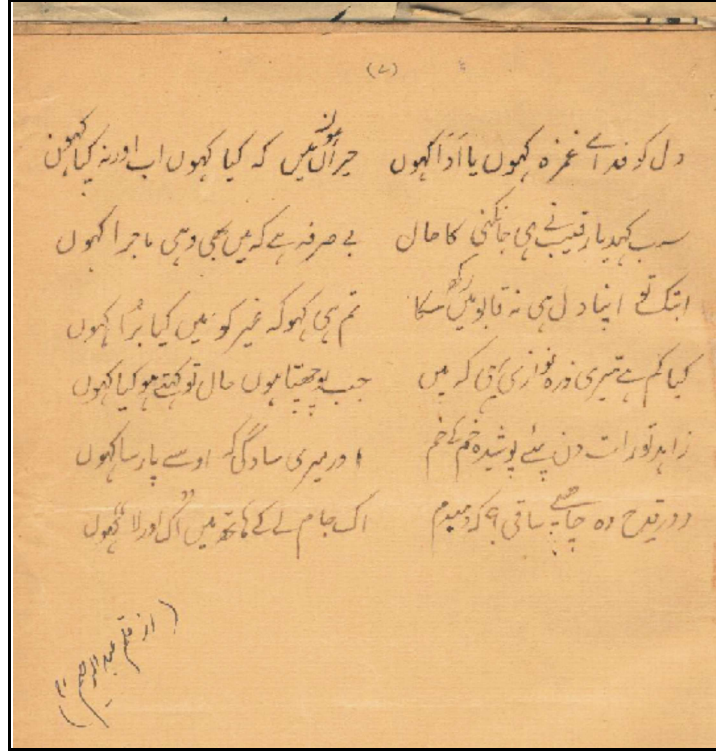 (۷)
دل کو فدائے غمزہ کہوں یا ادا کہوں حیراں ہوں میں کہ کیا کہوں اب اور نہ کیا کہوں
سب کہدیا رقیب نے ہی جانکنی کا حال بے صرفہ ہے کہ میں بھی وہی ماجرا کہوں
ابتک تو اپنا دل ہی نہ قابو میں رکھ سکا تم ہی کہو کہ غیر کو میں کیا برُا کہوں
کیا کم ہے تیری ذرہ نوازی کہ میں جب پوچھتا ہوں حال تو کہتے ہو کیا کہوں
زاہد تو رات دن پئے پوشیدہ خم کے خم اور میری سادگی کہ اوسے پارسا کہوں
دور قدح وہ چاہیے ساقی کہ دمبدم اک جام لے کے ہاتھ میں اک اور لا کہوں
(از قلم عبدالرحیم)